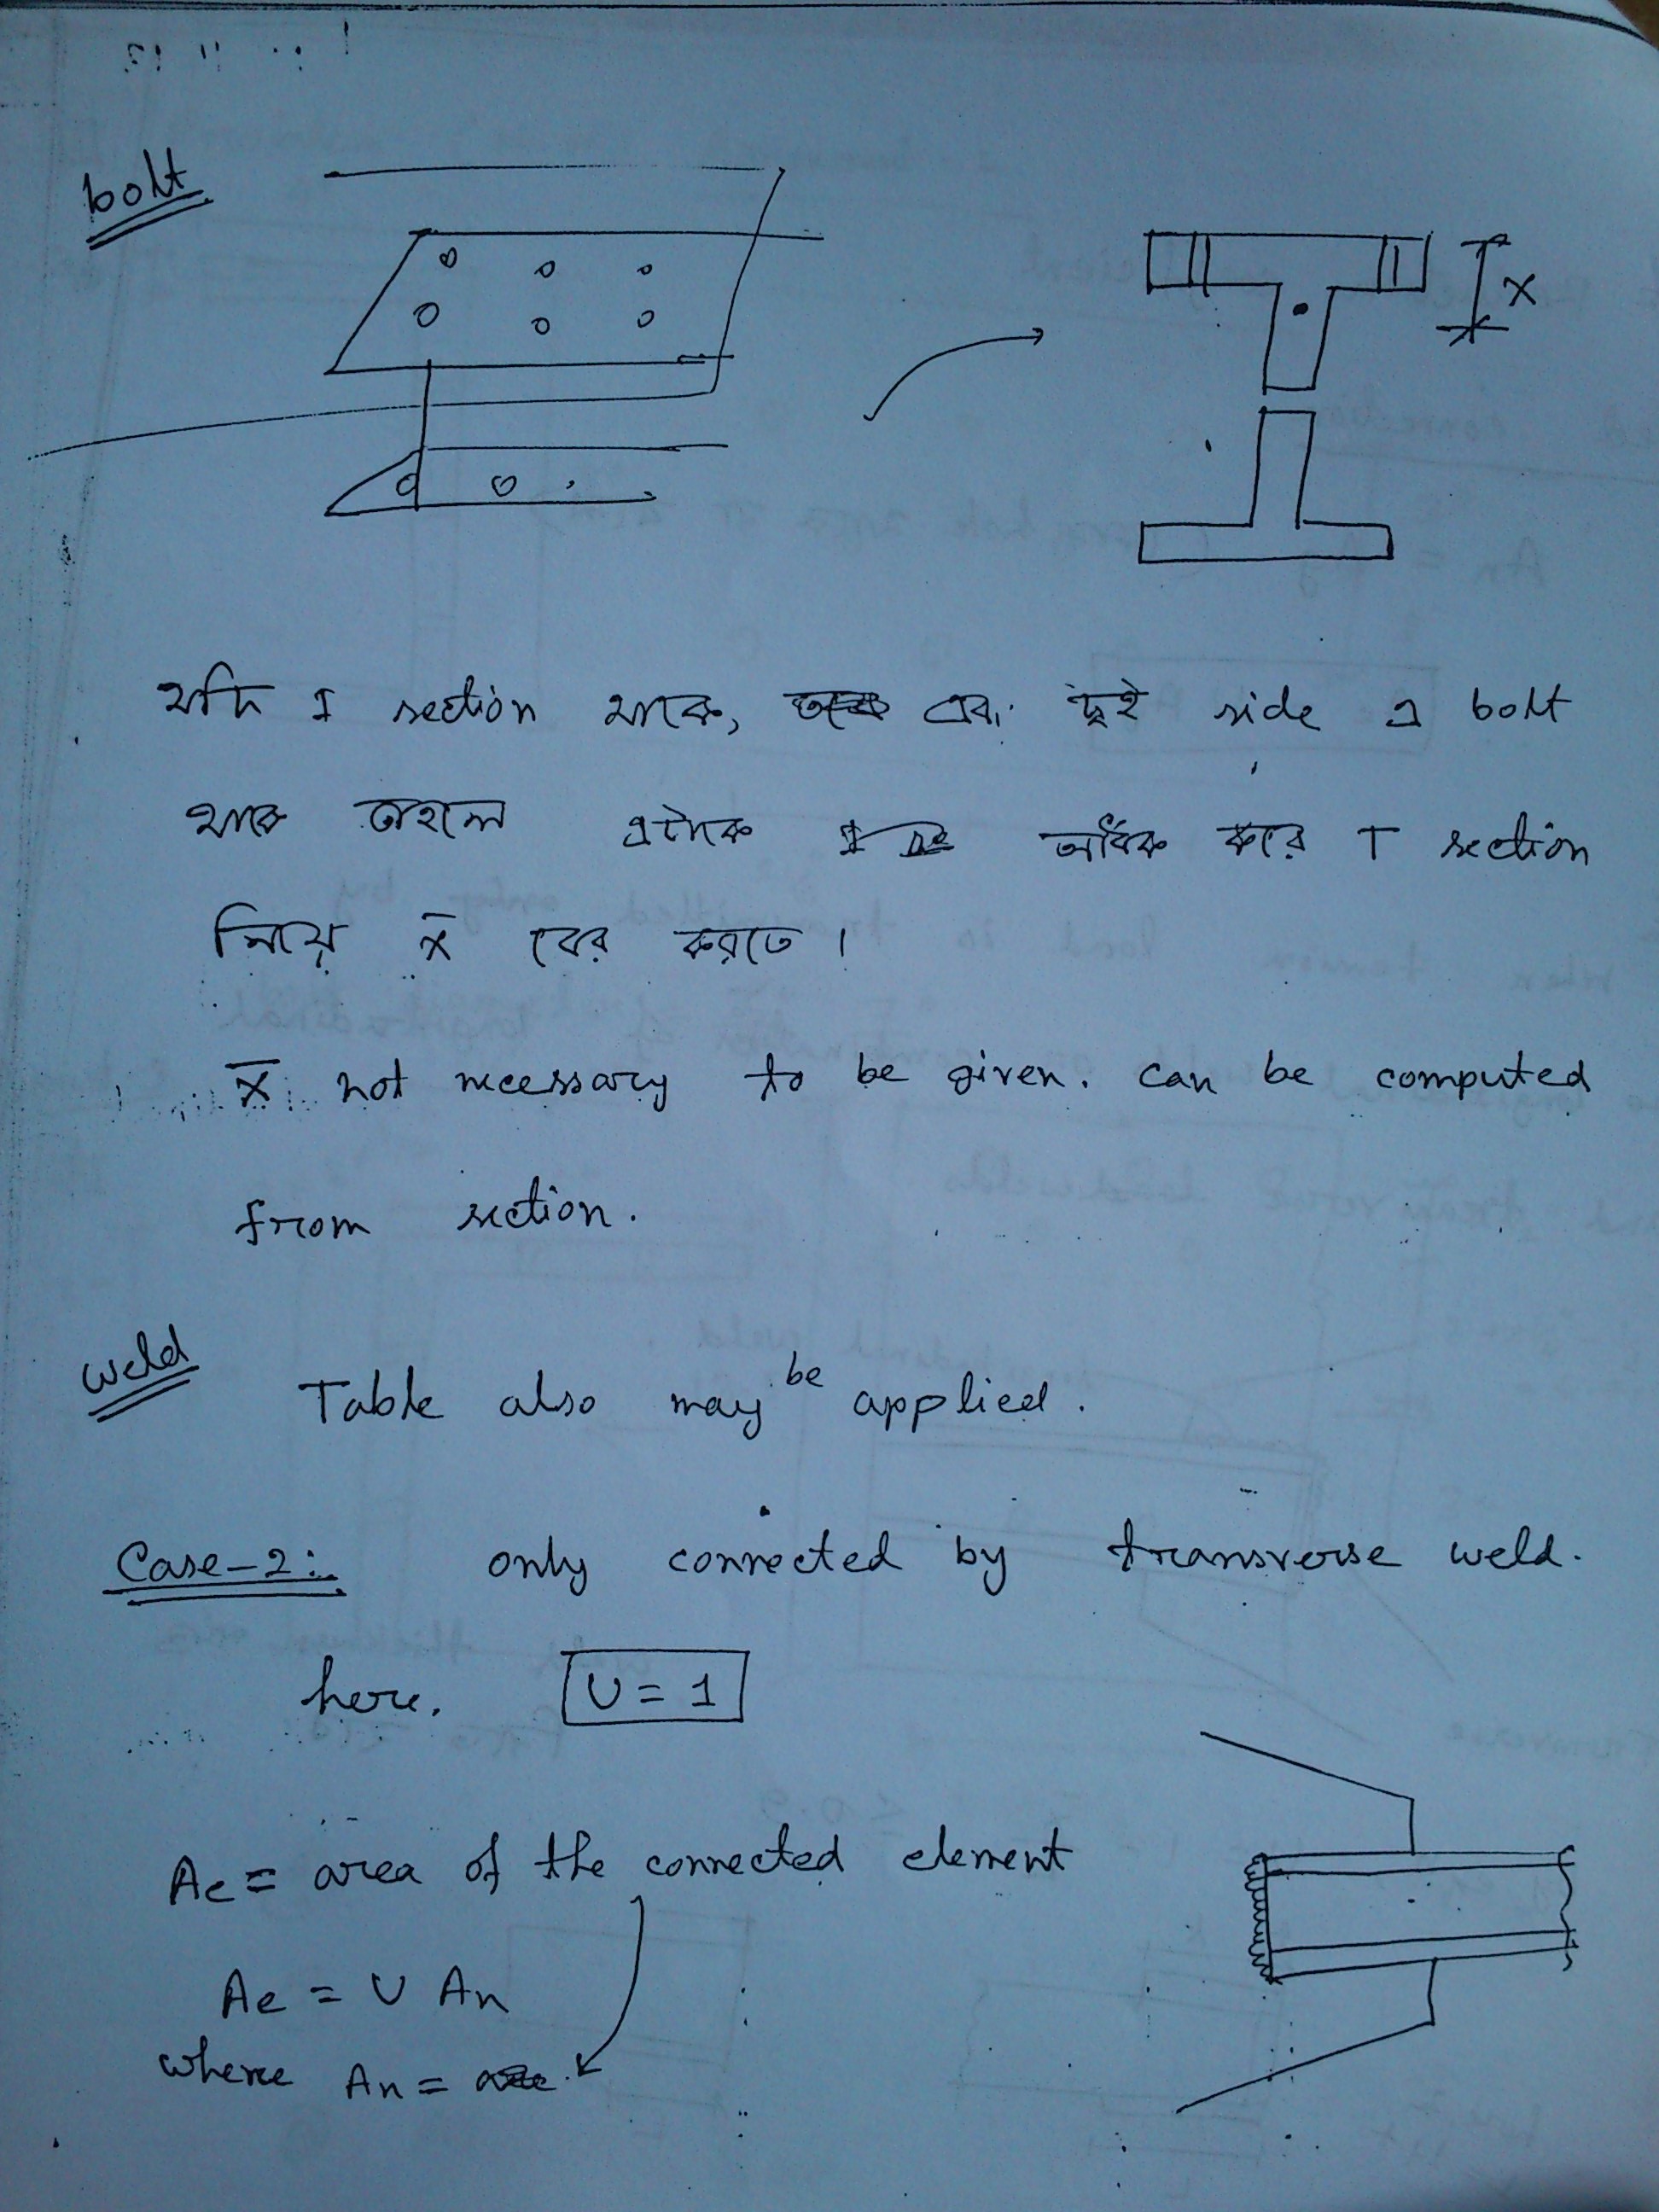 bolt
x
যদি I section থাকে, এবং দুই side এ bolt
থাকে তাহলে এটাকে অর্ধেক করে T section
নিয়ে x̄ বের করতে।
x̄ not necessary to be given. can be computed
from section.
weld
Table also may be applied.
Case-2:
only connected by transverse weld.
here, U = 1
Ae = area of the connected element
Ae = U An
where An =